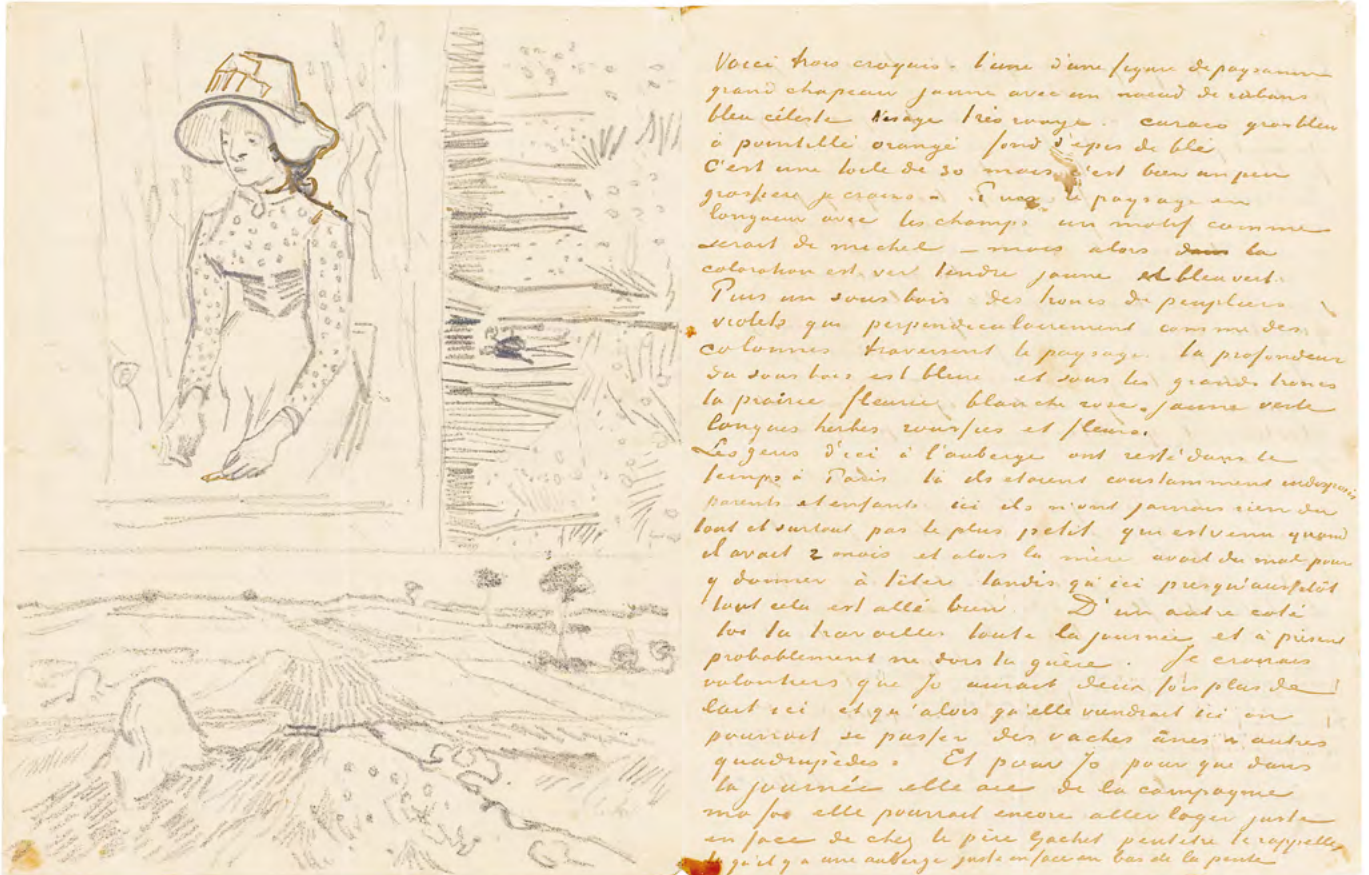 Voici trois croquis – l'une d'une figure de paysanne
grand chapeau jaune avec un nœud de rubans
bleu céleste visage très rouge. caraco gros bleu
à pointillé orangé fond d'épis de blé
C'est une toile de 30 mais c'est bien un peu
grossier je crains – Puis le paysage en
longueur avec les champs un motif comme
serait de michel – mais alors la
coloration est ver tendre jaune et bleu vert.
Puis un sous bois des troncs de peupliers
violets qui perpendiculairement comme des
colonnes traversent le paysage. la profondeur
du sous bois est bleue et sous les grands troncs
la prairie fleurie blanche rose. jaune verte
longues herbes roussies et fleurs.
Les gens d'ici à l'auberge ont resté dans le
temps à Paris là ils etaient constamment indisposés
parents et enfants ici ils n'ont jamais rien du
tout et surtout pas le plus petit qui est venu quand
il avait 2 mois et alors la mère avait du mal pour
y donner à têter tandis qu'ici presqu'aussitôt
tout cela est allé bien. D'un autre coté
toi tu travailles toute la journée et à présent
probablement ne dors tu guère. Je croirais
volontiers que Jo aurait deux fois plus de
lait ici et qu'alors qu'elle viendrait ici on
pourrait se passer des vaches ânes & autres
quadrupèdes. Et pour Jo pour que dans
la journée elle aie de la compagnie
ma foi elle pourrait encore aller loger juste
en face de chez le père Gachet peutetre te rappelles
tu qu'il y a une auberge juste en face en bas de la pente